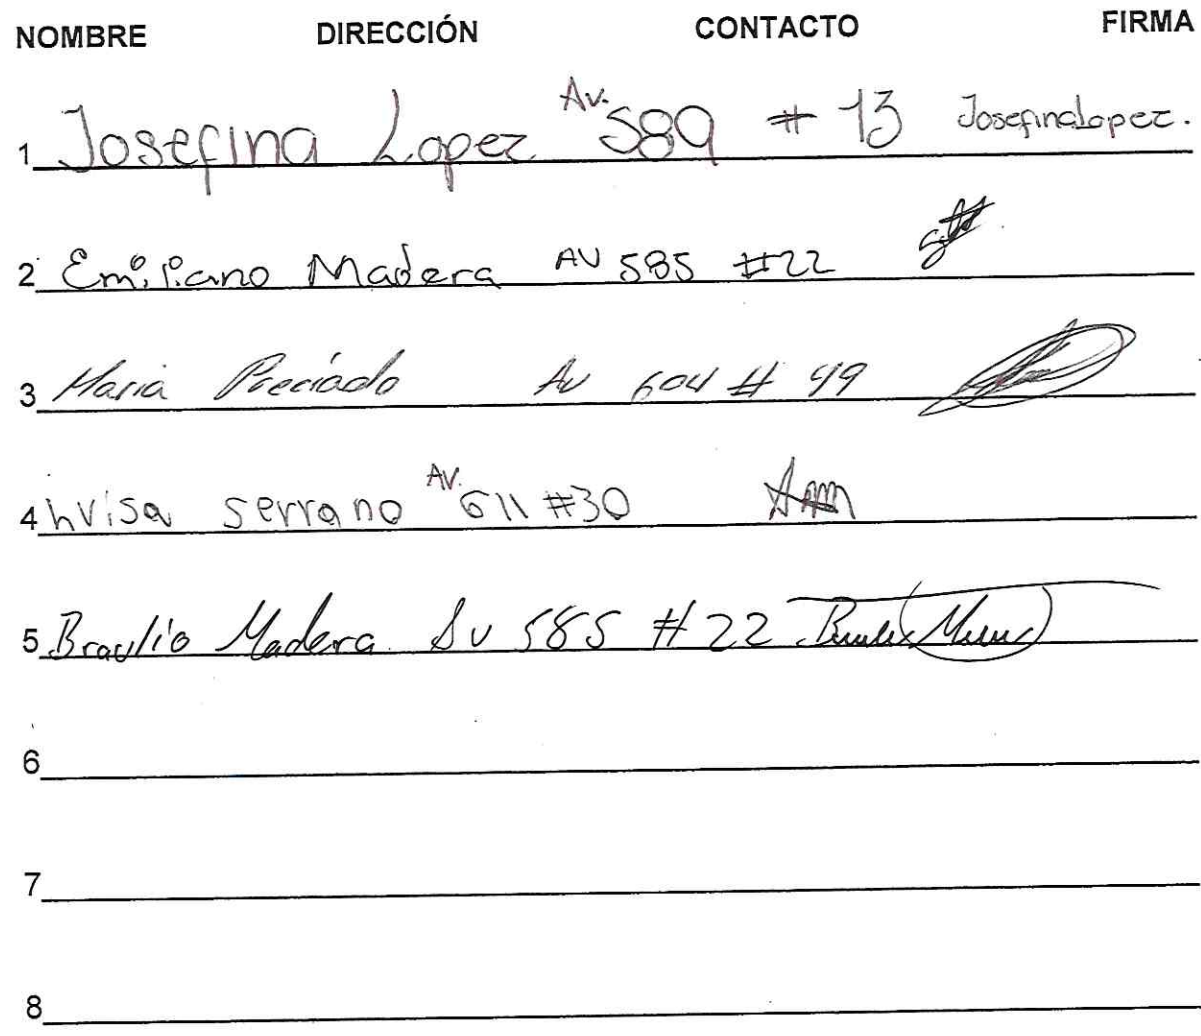 NOMBRE DIRECCIÓN CONTACTO FIRMA
1 Josefina Lopez Av. 589 # 13 Josefina Lopez.
2 Emiliano Madera AV 585 #22
3 Maria Preciado Av 604 # 49
4 hvisa serrano AV. 611 #30
5 Braulio Madera Av 585 # 22
6
7
8